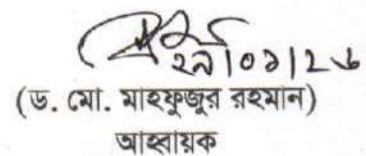 ২৯|০১|২৬
(ড. মো. মাহফুজুর রহমান)
আহ্বায়ক